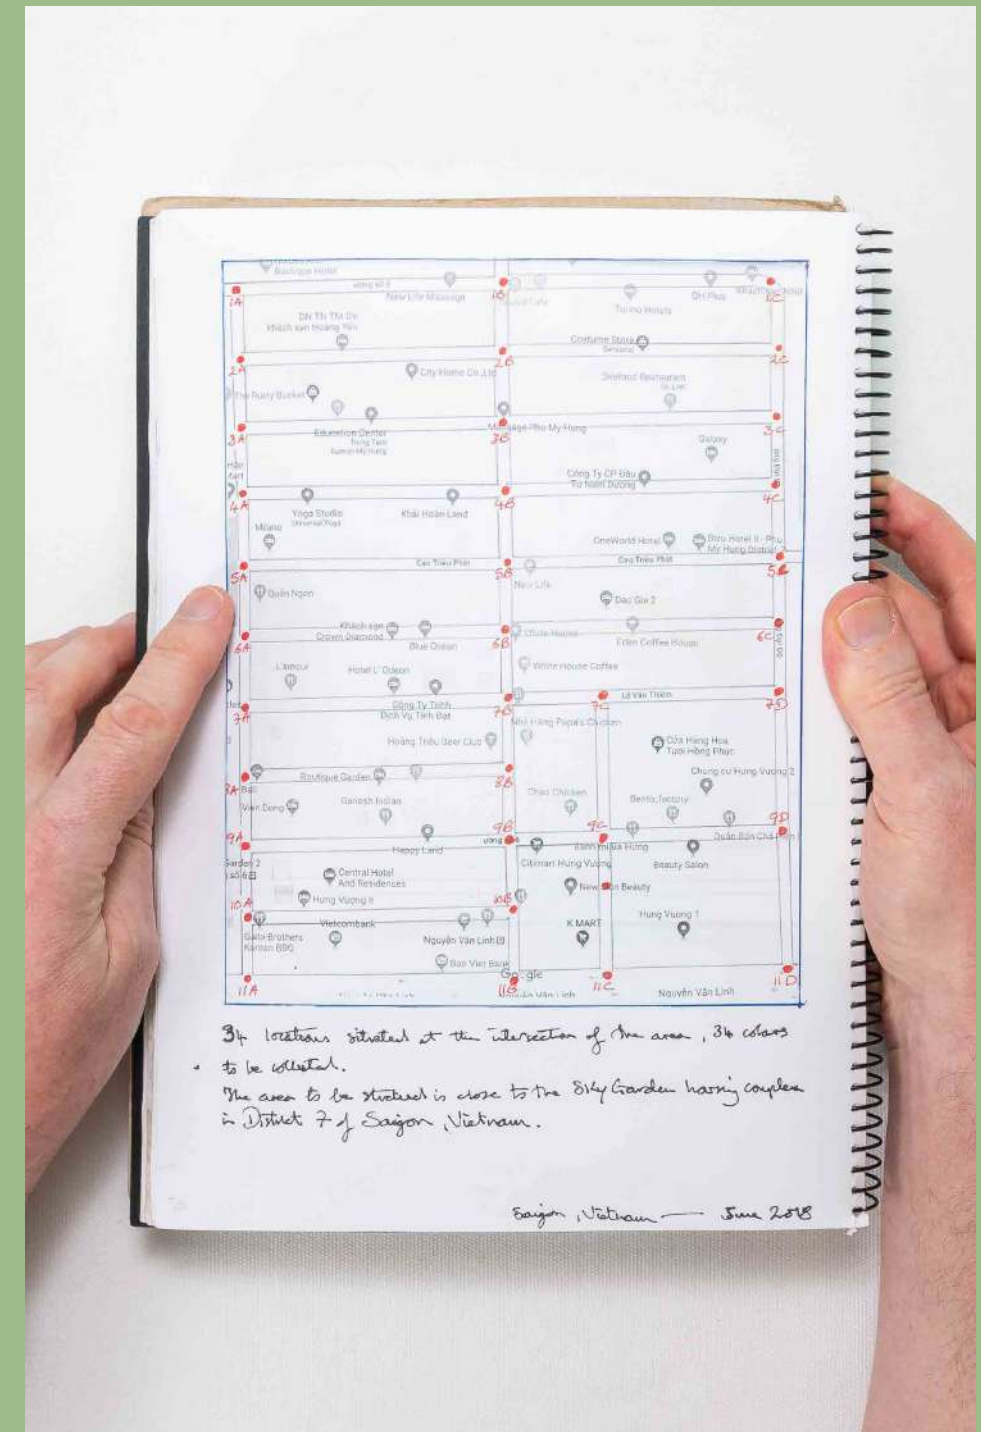 Boutique Hotel
1A
1B
1C
New Life Massage
Turino Hotels
QH Plus
DV TN TM DV
Khách sạn Hoàng Yến
Costume Store
2A
2B
2C
City Home Co.,Ltd
Seafood Restaurant
The Rusty Bucket
3A
3B
3C
Education Center
Massage Phu My Hung
Galaxy
Công Ty CP Đầu
Tư Nam Dương
4A
4B
4C
Yoga Studio
Universal Yoga
Khải Hoàn Land
Milano
OneWorld Hotel
My Hung District 7
Cao Triều Phát
Cao Triều Phát
5A
5B
New Life
Quán Ngon
Dau Gia 2
Khách sạn
Crown Diamond
Blue Ocean
Eden Coffee House
6A
6B
6C
L'amour
Hotel L' Odeon
White House Coffee
Lê Văn Thiêm
7A
7B
7C
7D
Công Ty Tnhh
Dịch Vụ Tinh Đạt
Nhà Hàng Papa's Chicken
Hoàng Triều Beer Club
Cửa Hàng Hoa
Tươi Hồng Phúc
8A
8B
Boutique Garden
Chung cư Hưng Vượng 2
Vien Dong
Ganesh Indian
Chao Chicken
Bento factory
9A
9B
9C
9D
Happy Land
Citimart Hưng Vượng
Beauty Salon
Garden 2
Central Hotel
And Residences
Beauty
Hưng Vượng II
10A
10B
Vietcombank
K MART
Hưng Vượng 1
Galbi Brothers
Korean BBQ
Nguyễn Văn Linh
Bao Viet Bank
Google
11A
11B
11C
11D
Nguyễn Văn Linh
Nguyễn Văn Linh
34 locations situated at the intersection of the area, 34 colors
to be collected.
The area to be studied is close to the Sky Garden housing complex
in District 7 of Saigon, Vietnam.
Saigon, Vietnam — June 2018